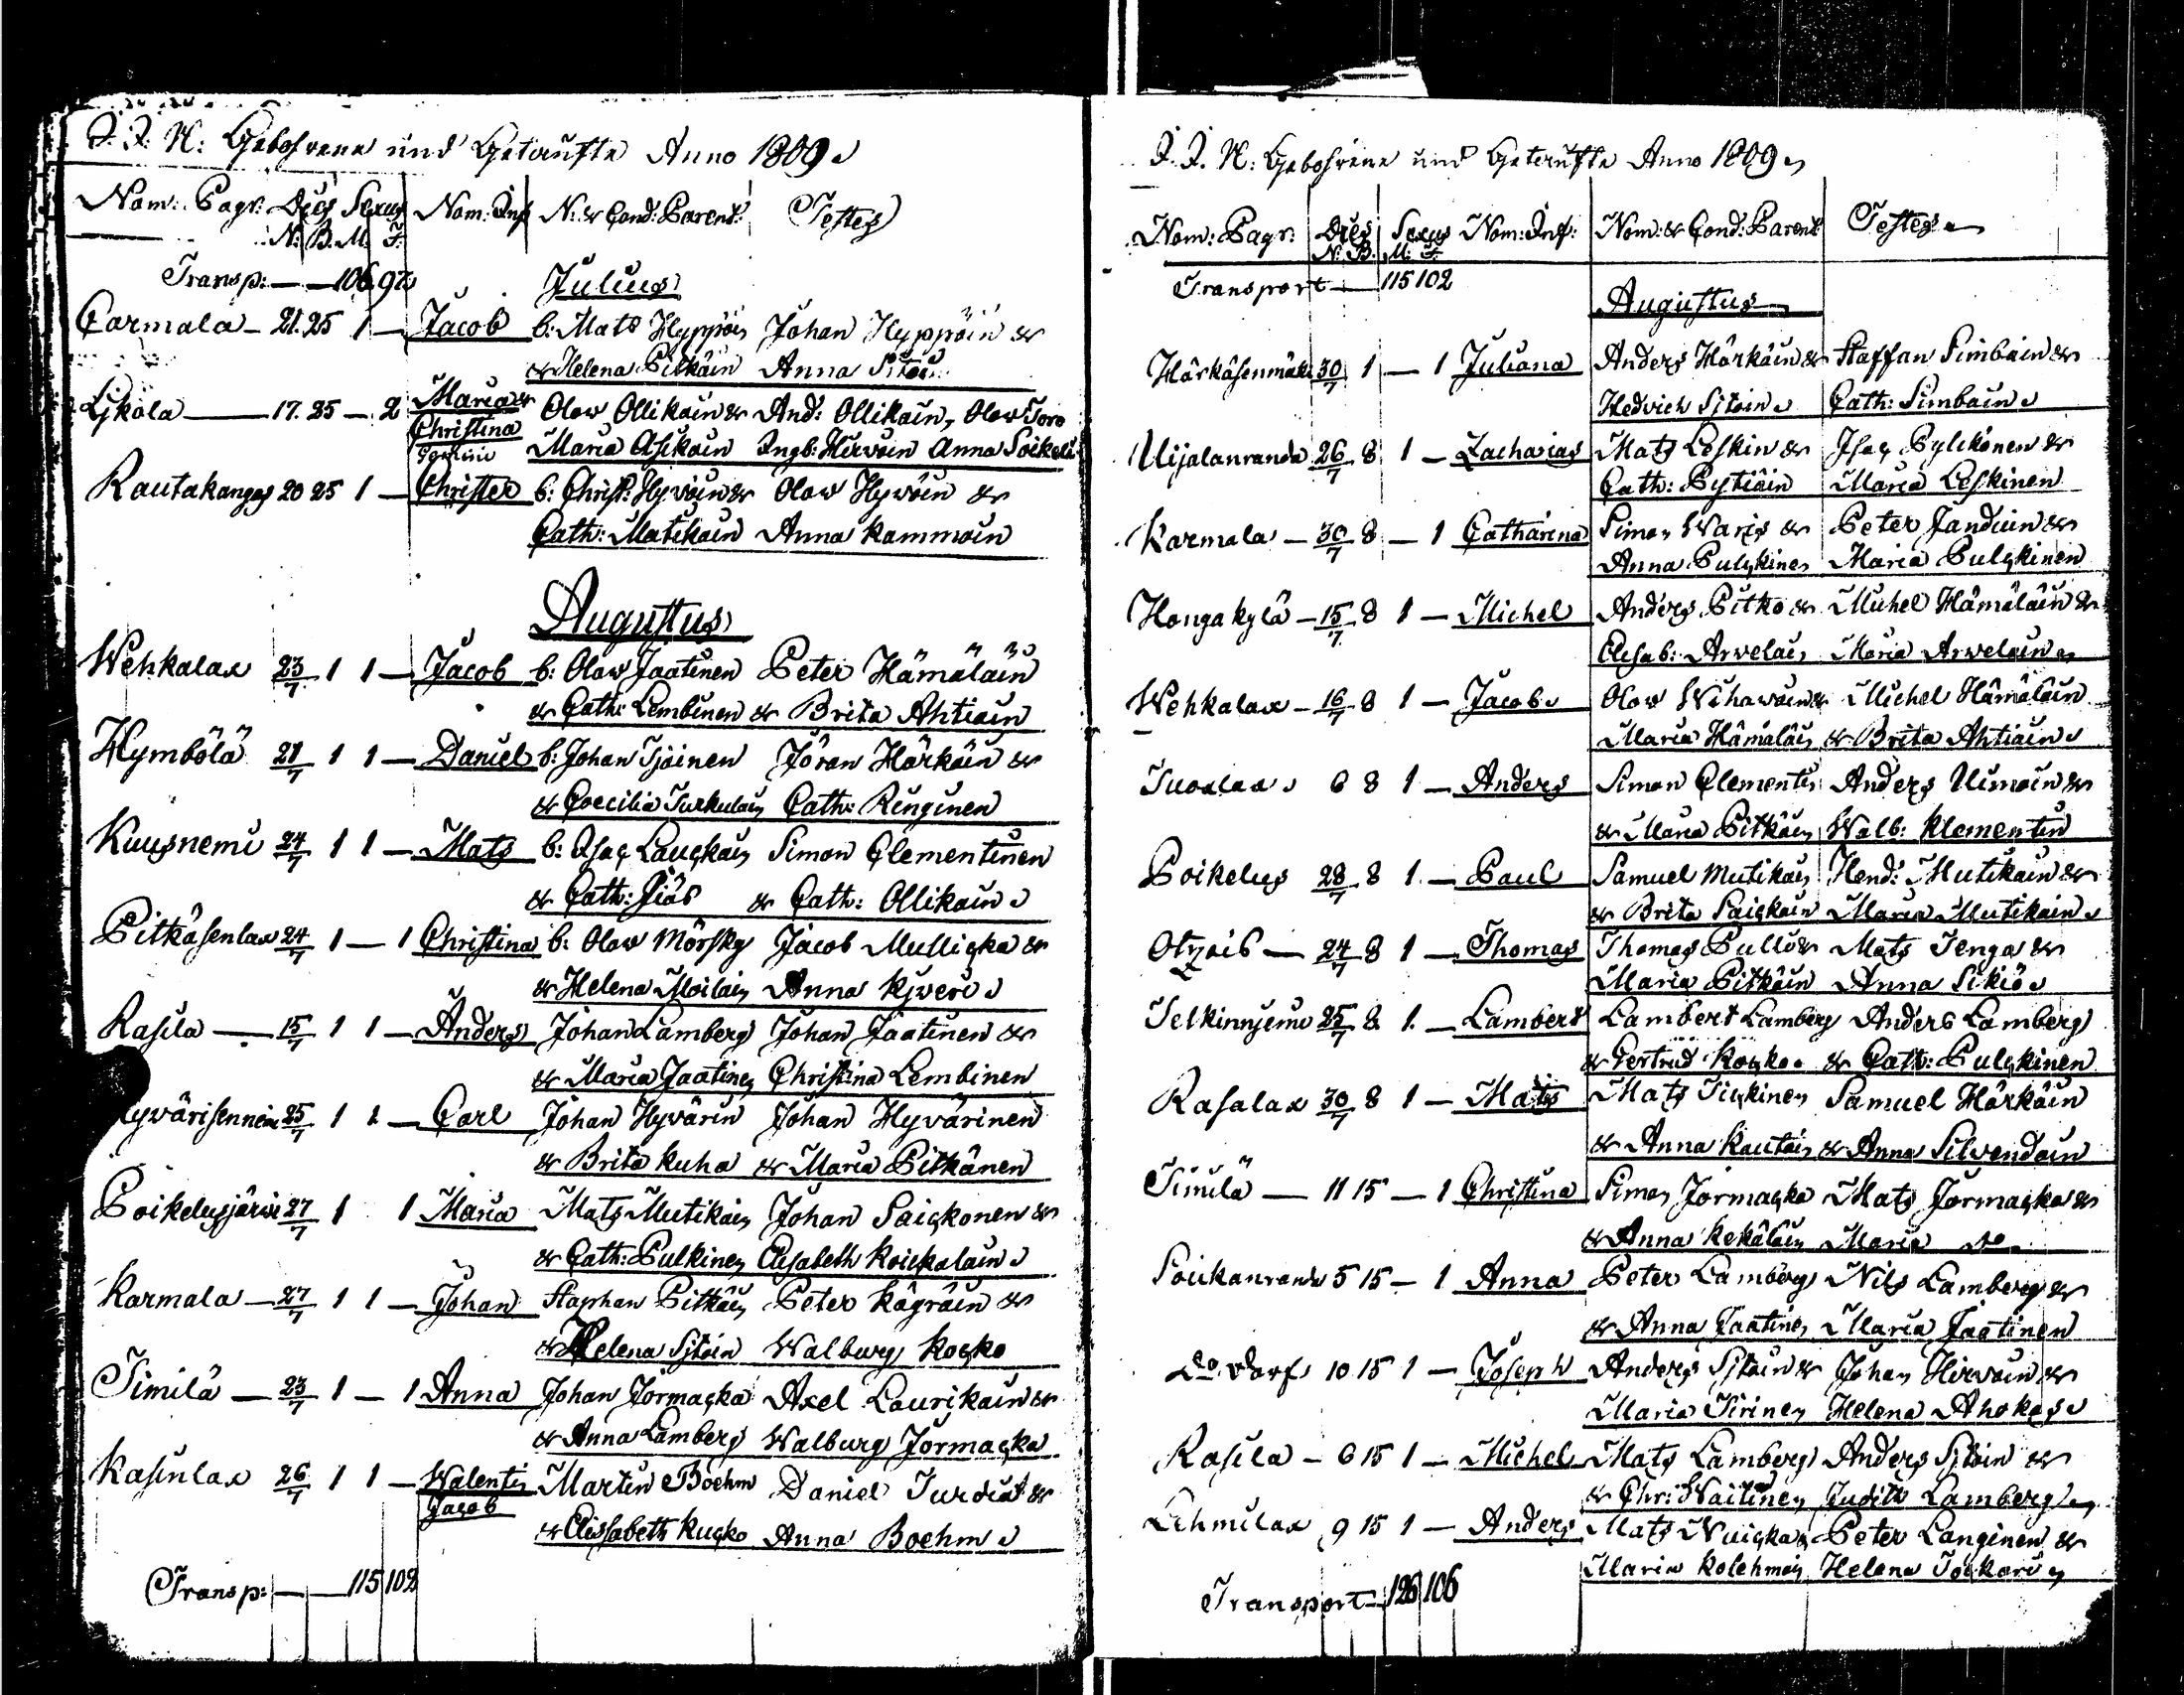 J. J. N: Gebohrene und Getaufte Anno 1809
Nom: Pagi: Dies Sexus Nom: Inf N: & Cond: Parent: Testes
N. B. M. F.
Transp: — — 106 97
Julius
Carmala — 21. 25 1 — Jacob b: Mats Hyppöin Johan Hyppöin &
& Helena Pitkäin Anna
Kjköla — 17. 25 — 2 Maria & Olow Ollikain & And: Ollikain, Olow Toro
Christina Maria Asikain Ingb: Hirwoin Anna
Gemini
Rautakangas 20 25 1 — Christer b: Christ: Hyvöin & Olow Hywöin &
Cath: Matikain Anna Kammoin
Augustus
Wehkalax 23/7 1 1 — Jacob b: Olow Jaatinen Peter Hämäläin
& Cath: Lembinen & Brita Ahtiain
Hymbölä 21/7 1 1 — Daniel b: Johan Sjöinen Jöran Härkäin &
& Coecilia Turkulain Cath: Ringinen
Kuusnemi 24/7 1 1 — Mats b: Isac Lauckain Simon Clementinen
& Cath: & Cath: Ollikain
Pitkäsenlax 24/7 1 — 1 Christina b: Olow Mörsky Jacob Mullicka &
& Helena Moilain Anna Kjweri
Rasila — 15/7 1 1 — Anders Johan Lamberg Johan Jaatinen &
& Maria Jaatinen Christina Lembinen
Hyvärisennemi 25/7 1 1 — Carl Johan Hyvärin Johan Hyvärinen
& Brita Kuha & Maria Pitkänen
Poikelusjärwi 27/7 1 1 Maria Mats Mutikain Johan Saickonen &
& Cath: Pulkinen Elisabeth Koickalain
Karmala — 27/7 1 1 — Johan Staphan Pitkäin Peter Kägräin &
& Helena Sjtoin Walburg Kocko
Similä — 23/7 1 — 1 Anna Johan Jormacka Axel Laurikain &
& Anna Lamberg Walburg Jormacka
Kasinlax 26/7 1 1 — Walentin Martin Boehm Daniel Turdiat &
Jacob
& Elisabeth Kucko Anna Boehm
Transp: — — 115 102
J. J. N: Gebohrene und Getaufte Anno 1809
Nom: Pagi: Dies Sexus Nom: Inf: Nom: & Cond: Parent Testes
N. B. M: F.
Transport — 115 102
Augustus
Härkäsenmäki 30/7 1 — 1 Juliana Anders Härkäin & Staffan Simbain &
Hedvich Sjtoin Cath: Simbain
Uijalanranda 26/7 8 1 — Zacharias Mats Leskin & Isac Pylckönen &
Cath: Pytiäin Maria Leskinen
Karmala — 30/7 8 — 1 Catharina Simon Waris & Peter Janduin &
Anna Pulckinen Maria Pulckinen
Hongakylä — 15/7 8 1 — Michel Anders Pitko & Michel Hämäläin &
Elisab: Arwelain Maria Arwelain
Wehkalax — 16/7 8 1 — Jacob Olow Wihawain & Michel Hämäläin
Maria Hämäläin & Brita Ahtiain
Tuoxlax 6 8 1 — Anders Simon Clementin Anders Uimoin &
& Maria Pitkäin Walb: Klementin
Poikelus 28/7 8 1 — Paul Samuel Mutikain Hend: Mutikain &
& Brita Saickain Maria Mutikain
Otzois — 24/7 8 1 — Thomas Thomas Pulli & Mats Tenga &
Maria Pitkäin Anna Sikiö
Selkinnjemi 25/7 8 1 — Lambert Lambert Lamberg Anders Lamberg
& Gertrud Kocko & Cath: Pulckinen
Rasalax 30/7 8 1 — Mats Mats Tickinen Samuel Härkäin
& Anna Kautain & Anna Silvendoin
Similä — 11 15 — 1 Christina Simon Jormacka Mats Jormacka &
& Anna Kekäläin Maria do
Soickanranda 5 15 — 1 Anna Peter Lamberg Nils Lamberg &
& Anna Jaatinen Maria Jaatinen
do Dorf 10 15 1 — Joseph Anders Sjtoin & Johan Hirwoin &
Maria Sirinen Helena Ahokas
Rasila — 6 15 1 — Michel Mats Lamberg Anders Sjtoin &
& Chr: Waitinen Judith Lamberg
Lihmilax 9 15 1 — Anders Mats Nuicka & Peter Langinen &
Maria Kolehmain Helena
Transport — 126 106